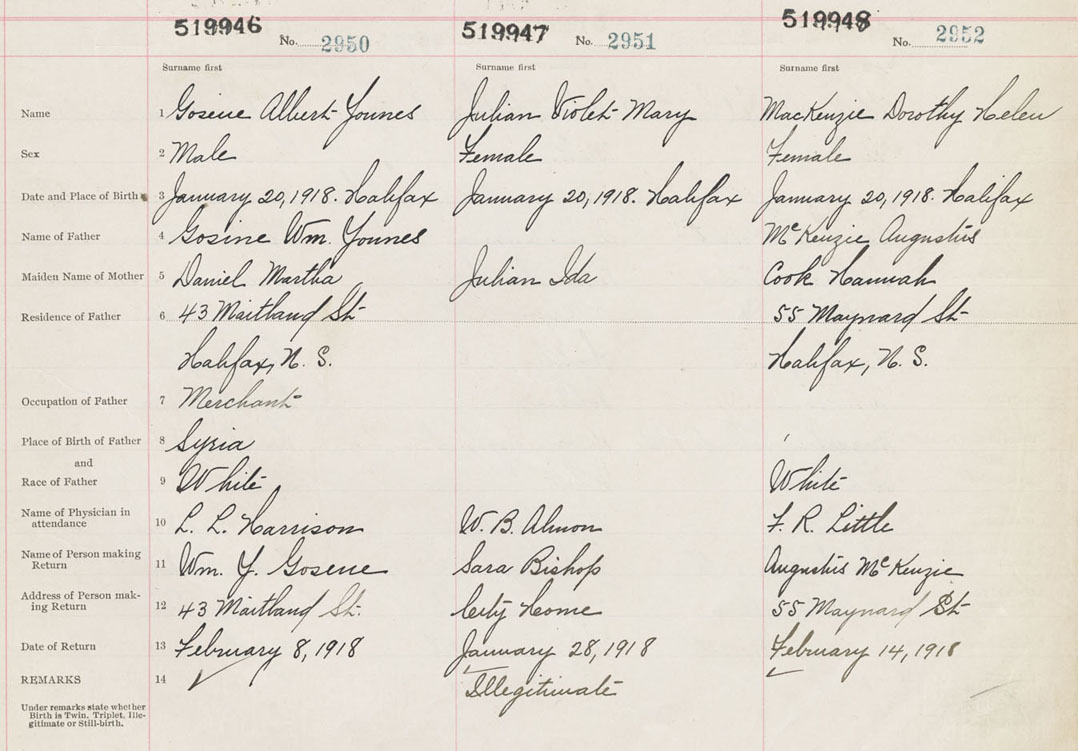 519946 No. 2950 519947 No. 2951 519948 No. 2952
Surname first Surname first Surname first
Name 1 Gosene Albert Younes Julian Violet Mary MacKenzie Dorothy Helen
Sex 2 Male Female Female
Date and Place of Birth 3 January 20, 1918. Halifax January 20, 1918. Halifax January 20, 1918. Halifax
Name of Father 4 Gosine Wm. Younes McKenzie Augustus
Maiden Name of Mother 5 Daniel Martha Julian Ida Cook Hannah
Residence of Father 6 43 Maitland St 55 Maynard St
Halifax, N. S. Halifax, N. S.
Occupation of Father 7 Merchant
Place of Birth of Father 8 Syria
and
Race of Father 9 White White
Name of Physician in
attendance 10 L. L. Harrison W. B. Almon F. R. Little
Name of Person making
Return 11 Wm. Y. Gosene Sara Bishop Augustus McKenzie
Address of Person mak-
ing Return 12 43 Maitland St. City Home 55 Maynard St
Date of Return 13 February 8, 1918 January 28, 1918 February 14, 1918
REMARKS 14 Illegitimate
Under remarks state whether
Birth is Twin, Triplet, Ille-
gitimate or Still-birth.